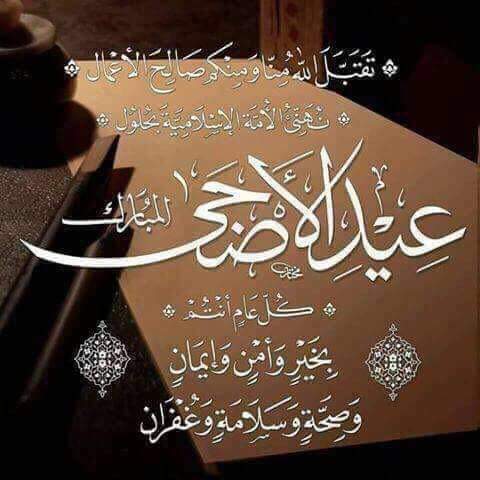 تَقَبَّلَ اللهُ مِنَّا وَمِنْكُم صَالِحَ الأَعْمَال
نُهَنِّئُ الأُمَّةَ الإِسْلَامِيَّةَ بِحُلُول
عِيدِ الأَضْحَى المُبَارَك
كُلُّ عَامٍ أَنْتُمْ
بِخَيْرٍ وَأَمْنٍ وَإِيمَانٍ
وَصِحَّةٍ وَسَلَامَةٍ وَغُفْرَان